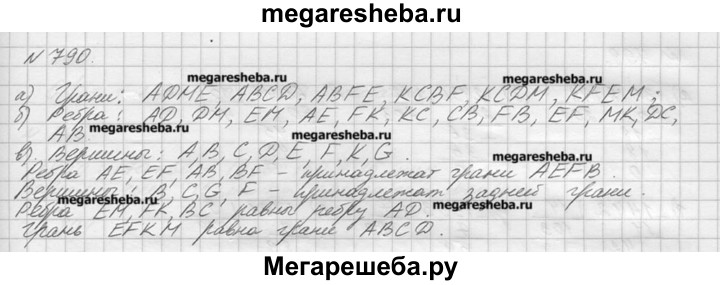 megaresheba.ru
N 790.
megaresheba.ru megaresheba.ru
а) Грани: ADME, ABCD, ABFE, KCBF, KCDM, KFEM;
б) Ребра: AD, DM, EM, AE, FK, KC, CB, FB, EF, MK, DC,
AB.
megaresheba.ru megaresheba.ru
в) Вершины: A, B, C, D, E, F, K, G.
Ребра AE, EF, AB, BF - принадлежат грани AEFB.
Вершины: B, C, G, F - принадлежат задней грани.
megaresheba.ru megaresheba.ru
Ребра EM, FK, BC равны ребру AD.
Грань EFKM равна грани ABCD.
Мегарешеба.ру